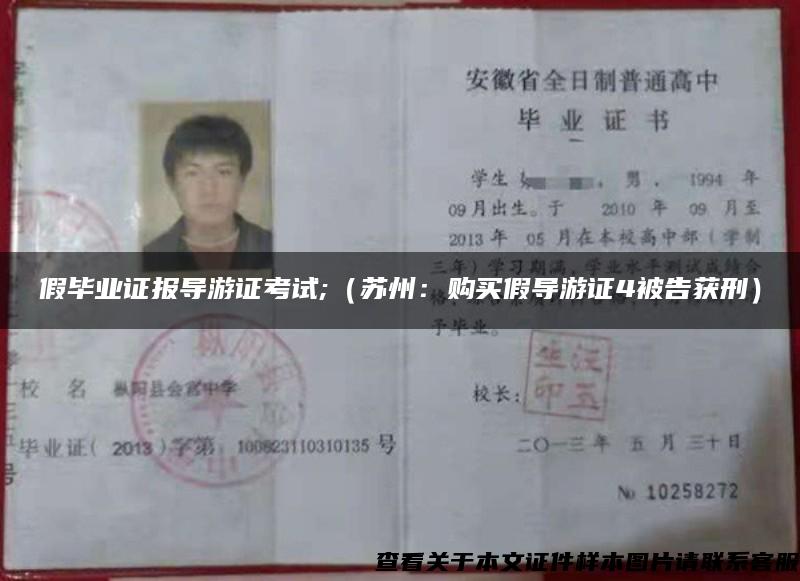 安徽省全日制普通高中
毕业证书
学生 男，1994 年
09月出生。于 2010 年 09 月至
2013年 05 月在本校高中部（学制
三年）学习期满，学业水平测试成绩合
假毕业证报导游证考试;（苏州：购买假导游证4被告获刑）
予毕业。
校 名 枞阳县会宫中学
校长：
毕业证( 2013 )字第 100823110310135 号
二〇一三年 五 月 三十日
№ 10258272
查看关于本文证件样本图片请联系客服